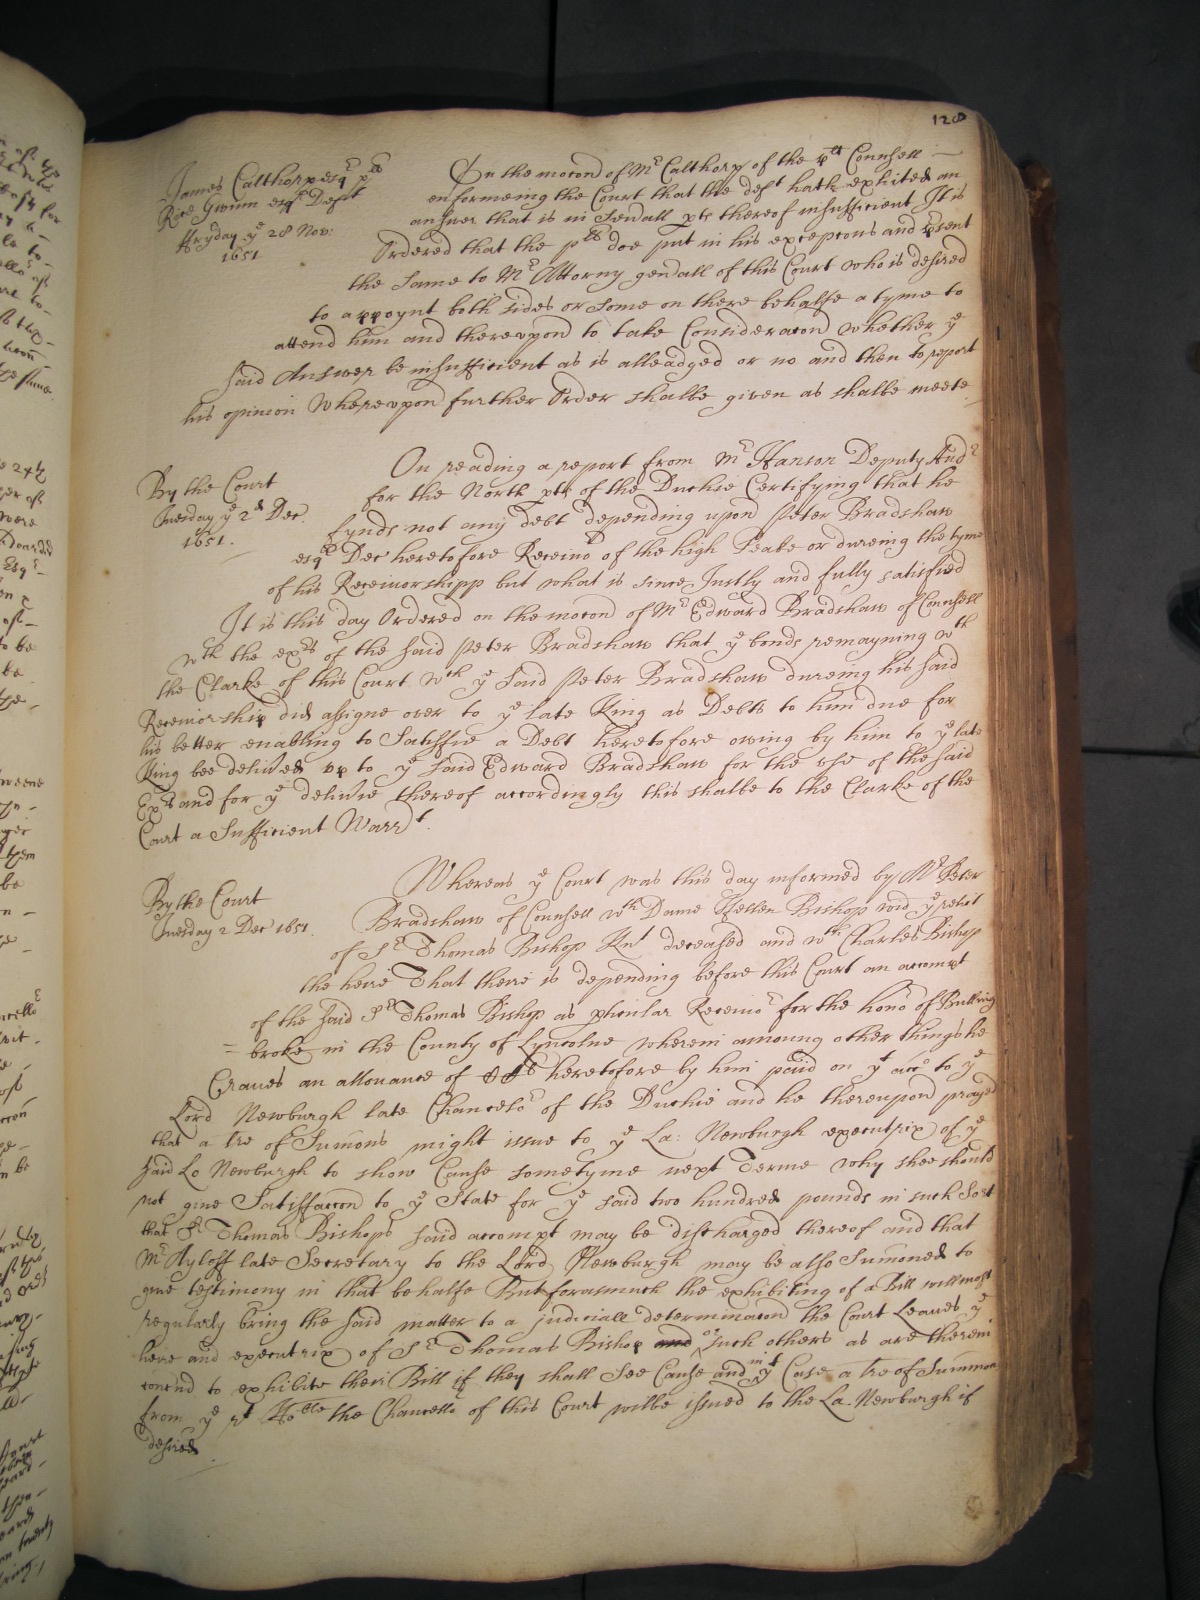 128
James Calthorp esqr plt
Rice Gwinn esqr Deft
ffryday ye 28 Nov:
1651
On the mocond of Mr Calthorp of the plts Counsell
enformeing the Court that the deft hath exhited an
answer that is in seuall pts thereof insufficient It is
Ordered that the plts doe put in his excepcons and psent
the same to Mr Attorny genall of this Court who is desired
to appoynt both sides or some on there behalfe a tyme to
attend him and therevpond to take Consideracond whether ye
said Answer be insufficient as is alleadged or no and then to report
his opinion Wherevpond further Order shalbe given as shalbe meete
By the Court
Tuesday ye 2d Dec.
1651.
On reading a report from Mr Hanson Deputy Audr
for the North pte of the Duchie Certifying that he
fynds not any debt depending upon Peter Bradshaw
esqr Dec heretofore Receivor of the high Peake or dureing the tyme
of his Receivorshipp but what is since Justly and fully satisfied
It is this day Ordered on the mocond of Mr Edward Bradshaw of Counsell
wth the exrs of the said Peter Bradshaw that ye bonds remayning wth
the Clarke of this Court wch ye said Peter Bradshaw dureing his said
Receivorship did assigne over to ye late King as Debts to him due for
his better enabling to Satisfie a Debt heretofore owing by him to ye late
King bee delivred vp to ye said Edward Bradshaw for the vse of the said
Exrs and for ye delivie thereof accordingly this shalbe to the Clarke of the
Court a Sufficient Warrt.
By the Court
Tuesday 2 Dec 1651.
Whereas ye Court was this day informed by Mr Peter
Bradshaw of Counsell wth Dame Hellen Bishop wid ye relict
of Sr Thomas Bishop Knt deceased and wth Charles Bishop
the heire That there is depending before this Court an accompt
of the said Sr Thomas Bishop as pticular Receivor for the honor of Bulling
= broke in the County of Lyncolne wherein amoung other things he
Craves an allowance of heretofore by him paid on yt acco to ye
Lord Newburgh late Chancelor of the Duchie and he thereupon prayed
that a tre of Sumons might issue to ye La: Newburgh executrix of ye
said Lo Newburgh to show Cause sometyme next Terme why shee should
not give Satisffaccon to ye State for ye said two hundred pounds in such sort
that Sr Thomas Bishops said accompt may be discharged thereof and that
Mr Ayloff late Secretary to the Lord Newburgh may be also Sumoned to
give testimony in that behalfe But forasmuch the exhibiting of a Bill will most
regularly bring the said matter to a judiciall determinacond the Court Leaves ye
heire and executrix of Sr Thomas Bishop and or such others as are therein
concnd to exhibite their Bill if they shall see Cause and in yt Case a tre of Summon
from ye rt Hoble the Chancello of this Court wilbe issued to the La. Newburgh if
desired